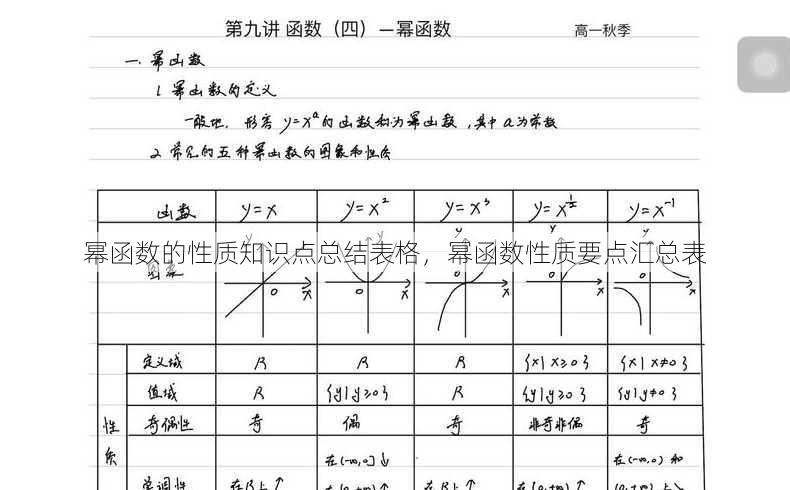 第九讲 函数（四）—幂函数
高一秋季
一. 幂函数
1. 幂函数的定义
一般地, 形容 y=xᵅ的函数称为幂函数, 其中 α为常数
2. 常见的五种幂函数的图象和性质
函数 y=x y=x² y=x³ y=x^½ y=x⁻¹
幂函数的性质知识点总结表格，幂函数性质要点汇总表
图象
y y y y
O x O x O x O x O x
定义域 R R R {x|x≥0} {x|x≠0}
值域 R {y|y≥0} R {y|y≥0} {y|y≠0}
奇偶性 奇 偶 奇 非奇非偶 奇
性质
在(-∞,0]↓ 在(-∞,0) 和
单调性 在R上↑ 在R上↑